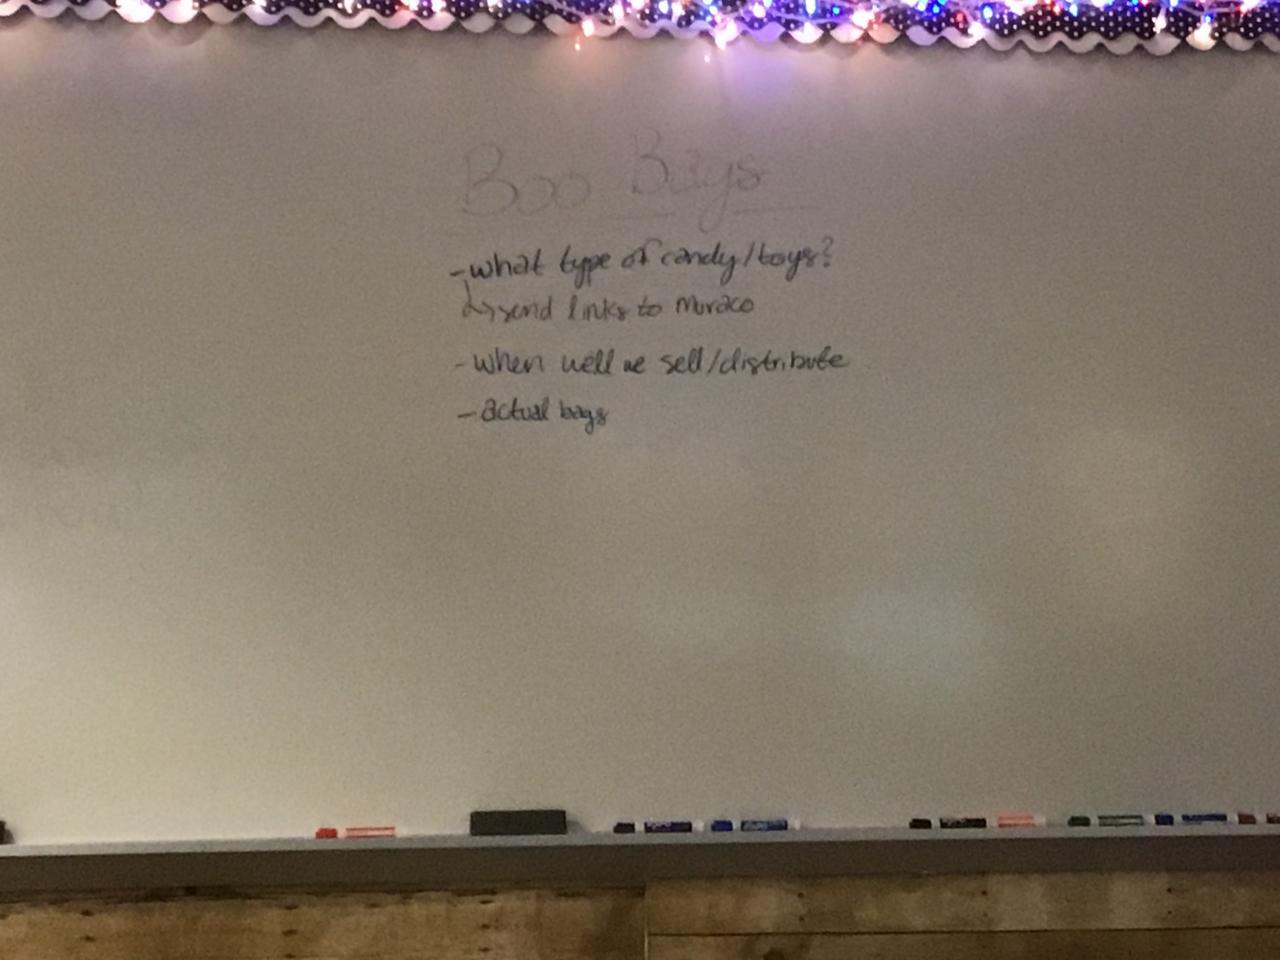 Boo Bags
- what type of candy/toys?
↳ send links to Muraco
- when well we sell/distribute
- actual bags